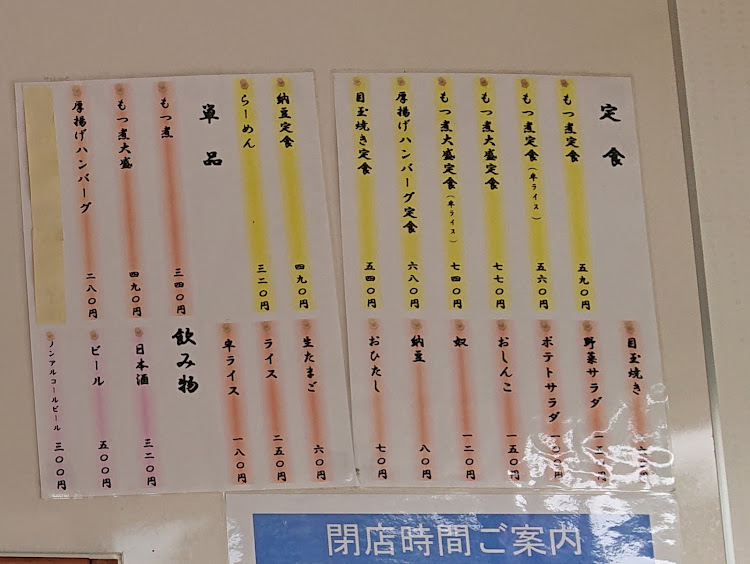 定食
もつ煮定食 五九〇円
もつ煮定食(半ライス) 五六〇円
もつ煮大盛定食 七七〇円
もつ煮大盛定食(半ライス) 七四〇円
厚揚げハンバーグ定食 六八〇円
目玉焼き定食 五四〇円
納豆定食 四九〇円
らーめん 三二〇円
単品
もつ煮 三四〇円
もつ煮大盛 四九〇円
厚揚げハンバーグ 二八〇円
目玉焼き
野菜サラダ
ポテトサラダ
おしんこ 一五〇円
奴 一二〇円
納豆 八〇円
おひたし 七〇円
生たまご 六〇円
ライス 二五〇円
半ライス 一八〇円
飲み物
日本酒 三二〇円
ビール 五〇〇円
ノンアルコールビール 三〇〇円
閉店時間ご案内